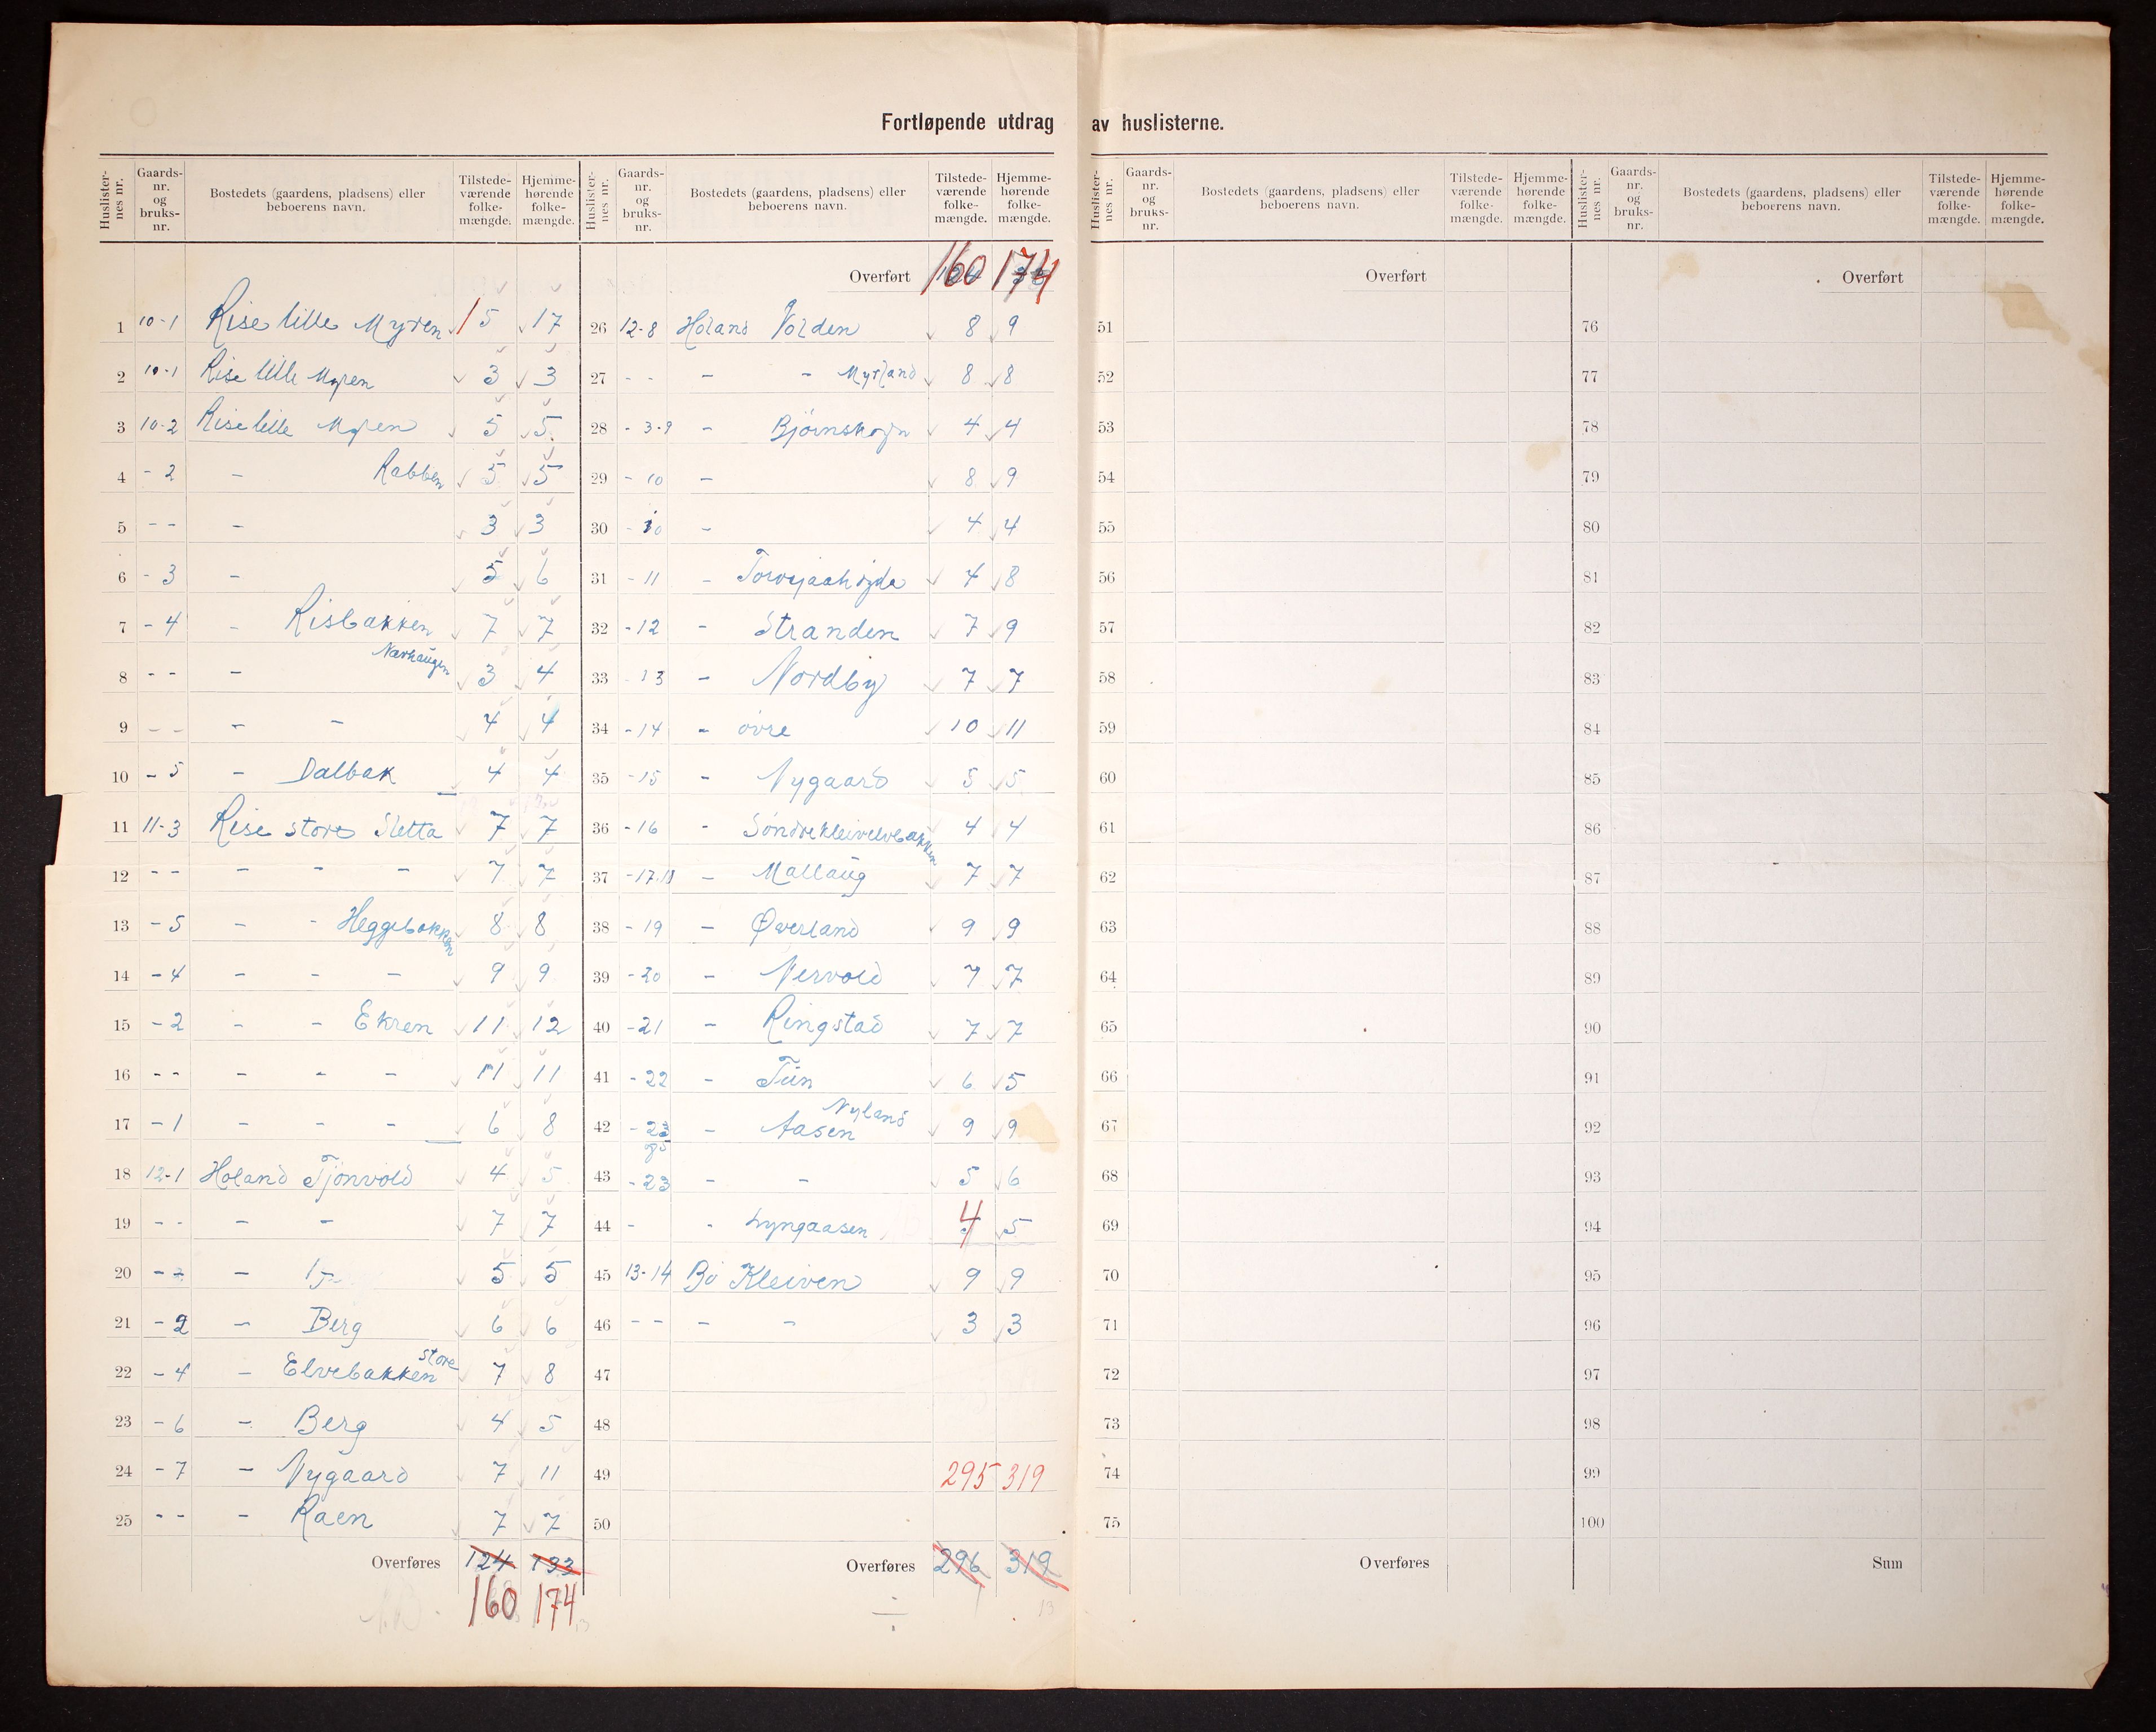 Fortløpende utdrag av huslisterne.
Huslister-nes nr. | Gaards-nr. og bruks-nr. | Bostedets (gaardens, pladsens) eller beboerens navn. | Tilstede-værende folke-mængde. | Hjemme-hørende folke-mængde.
1 10-1 Rise lille Myren 15 17
2 10-1 Rise lille Myren 3 3
3 10-2 Rise lille Myren 5 5
4 - 2 - Rabben 5 5
5 - - - 3 3
6 - 3 - 5 6
7 - 4 - Risbakken 7 7
8 - - - Nærhaugen 3 4
9 - - - - 4 4
10 - 5 - Dalbak 4 4
11 11-3 Rise store Sletta 7 7
12 - - - - - 7 7
13 - 5 - - Heggebakken 8 8
14 - 4 - - - 9 9
15 - 2 - - Ekren 11 12
16 - - - - - 11 11
17 - 1 - - - 6 8
18 12-1 Holand Tjönvold 4 5
19 - - - - 7 7
20 - - - 5 5
21 - 2 - Berg 6 6
22 - 4 - Elvebakken store 7 8
23 - 6 - Berg 4 5
24 - 7 - Nygaard 7 11
25 - - - Raen 7 7
Overføres 124 133
160 174
Huslister-nes nr. | Gaards-nr. og bruks-nr. | Bostedets (gaardens, pladsens) eller beboerens navn. | Tilstede-værende folke-mængde. | Hjemme-hørende folke-mængde.
Overført 160 174
26 12-8 Holand Volden 8 9
27 - - - - Myrland 8 8
28 - 3-9 - Bjørnskogn 4 4
29 - 10 - 8 9
30 - 10 - 4 4
31 - 11 - 4 8
32 - 12 - Stranden 7 9
33 - 13 - Nordby 7 7
34 - 14 - övre 10 11
35 - 15 - Nygaard 5 5
36 - 16 - 4 4
37 - 17.18 - Mallaug 7 7
38 - 19 - Øverland 9 9
39 - 20 - Nervold 7 7
40 - 21 - Ringstad 7 7
41 - 22 - Tun 6 5
42 - 23 - Aasen Nyland 9 9
43 - 23 - - 5 6
44 - - Lyngaasen 4 5
45 13-14 Bö Kleiven 9 9
46 - - - - 3 3
47
48
49 295 319
50
Overføres 296 319
Huslister-nes nr. | Gaards-nr. og bruks-nr. | Bostedets (gaardens, pladsens) eller beboerens navn. | Tilstede-værende folke-mængde. | Hjemme-hørende folke-mængde.
Overført
51
52
53
54
55
56
57
58
59
60
61
62
63
64
65
66
67
68
69
70
71
72
73
74
75
Overføres
Huslister-nes nr. | Gaards-nr. og bruks-nr. | Bostedets (gaardens, pladsens) eller beboerens navn. | Tilstede-værende folke-mængde. | Hjemme-hørende folke-mængde.
Overført
76
77
78
79
80
81
82
83
84
85
86
87
88
89
90
91
92
93
94
95
96
97
98
99
100
Sum